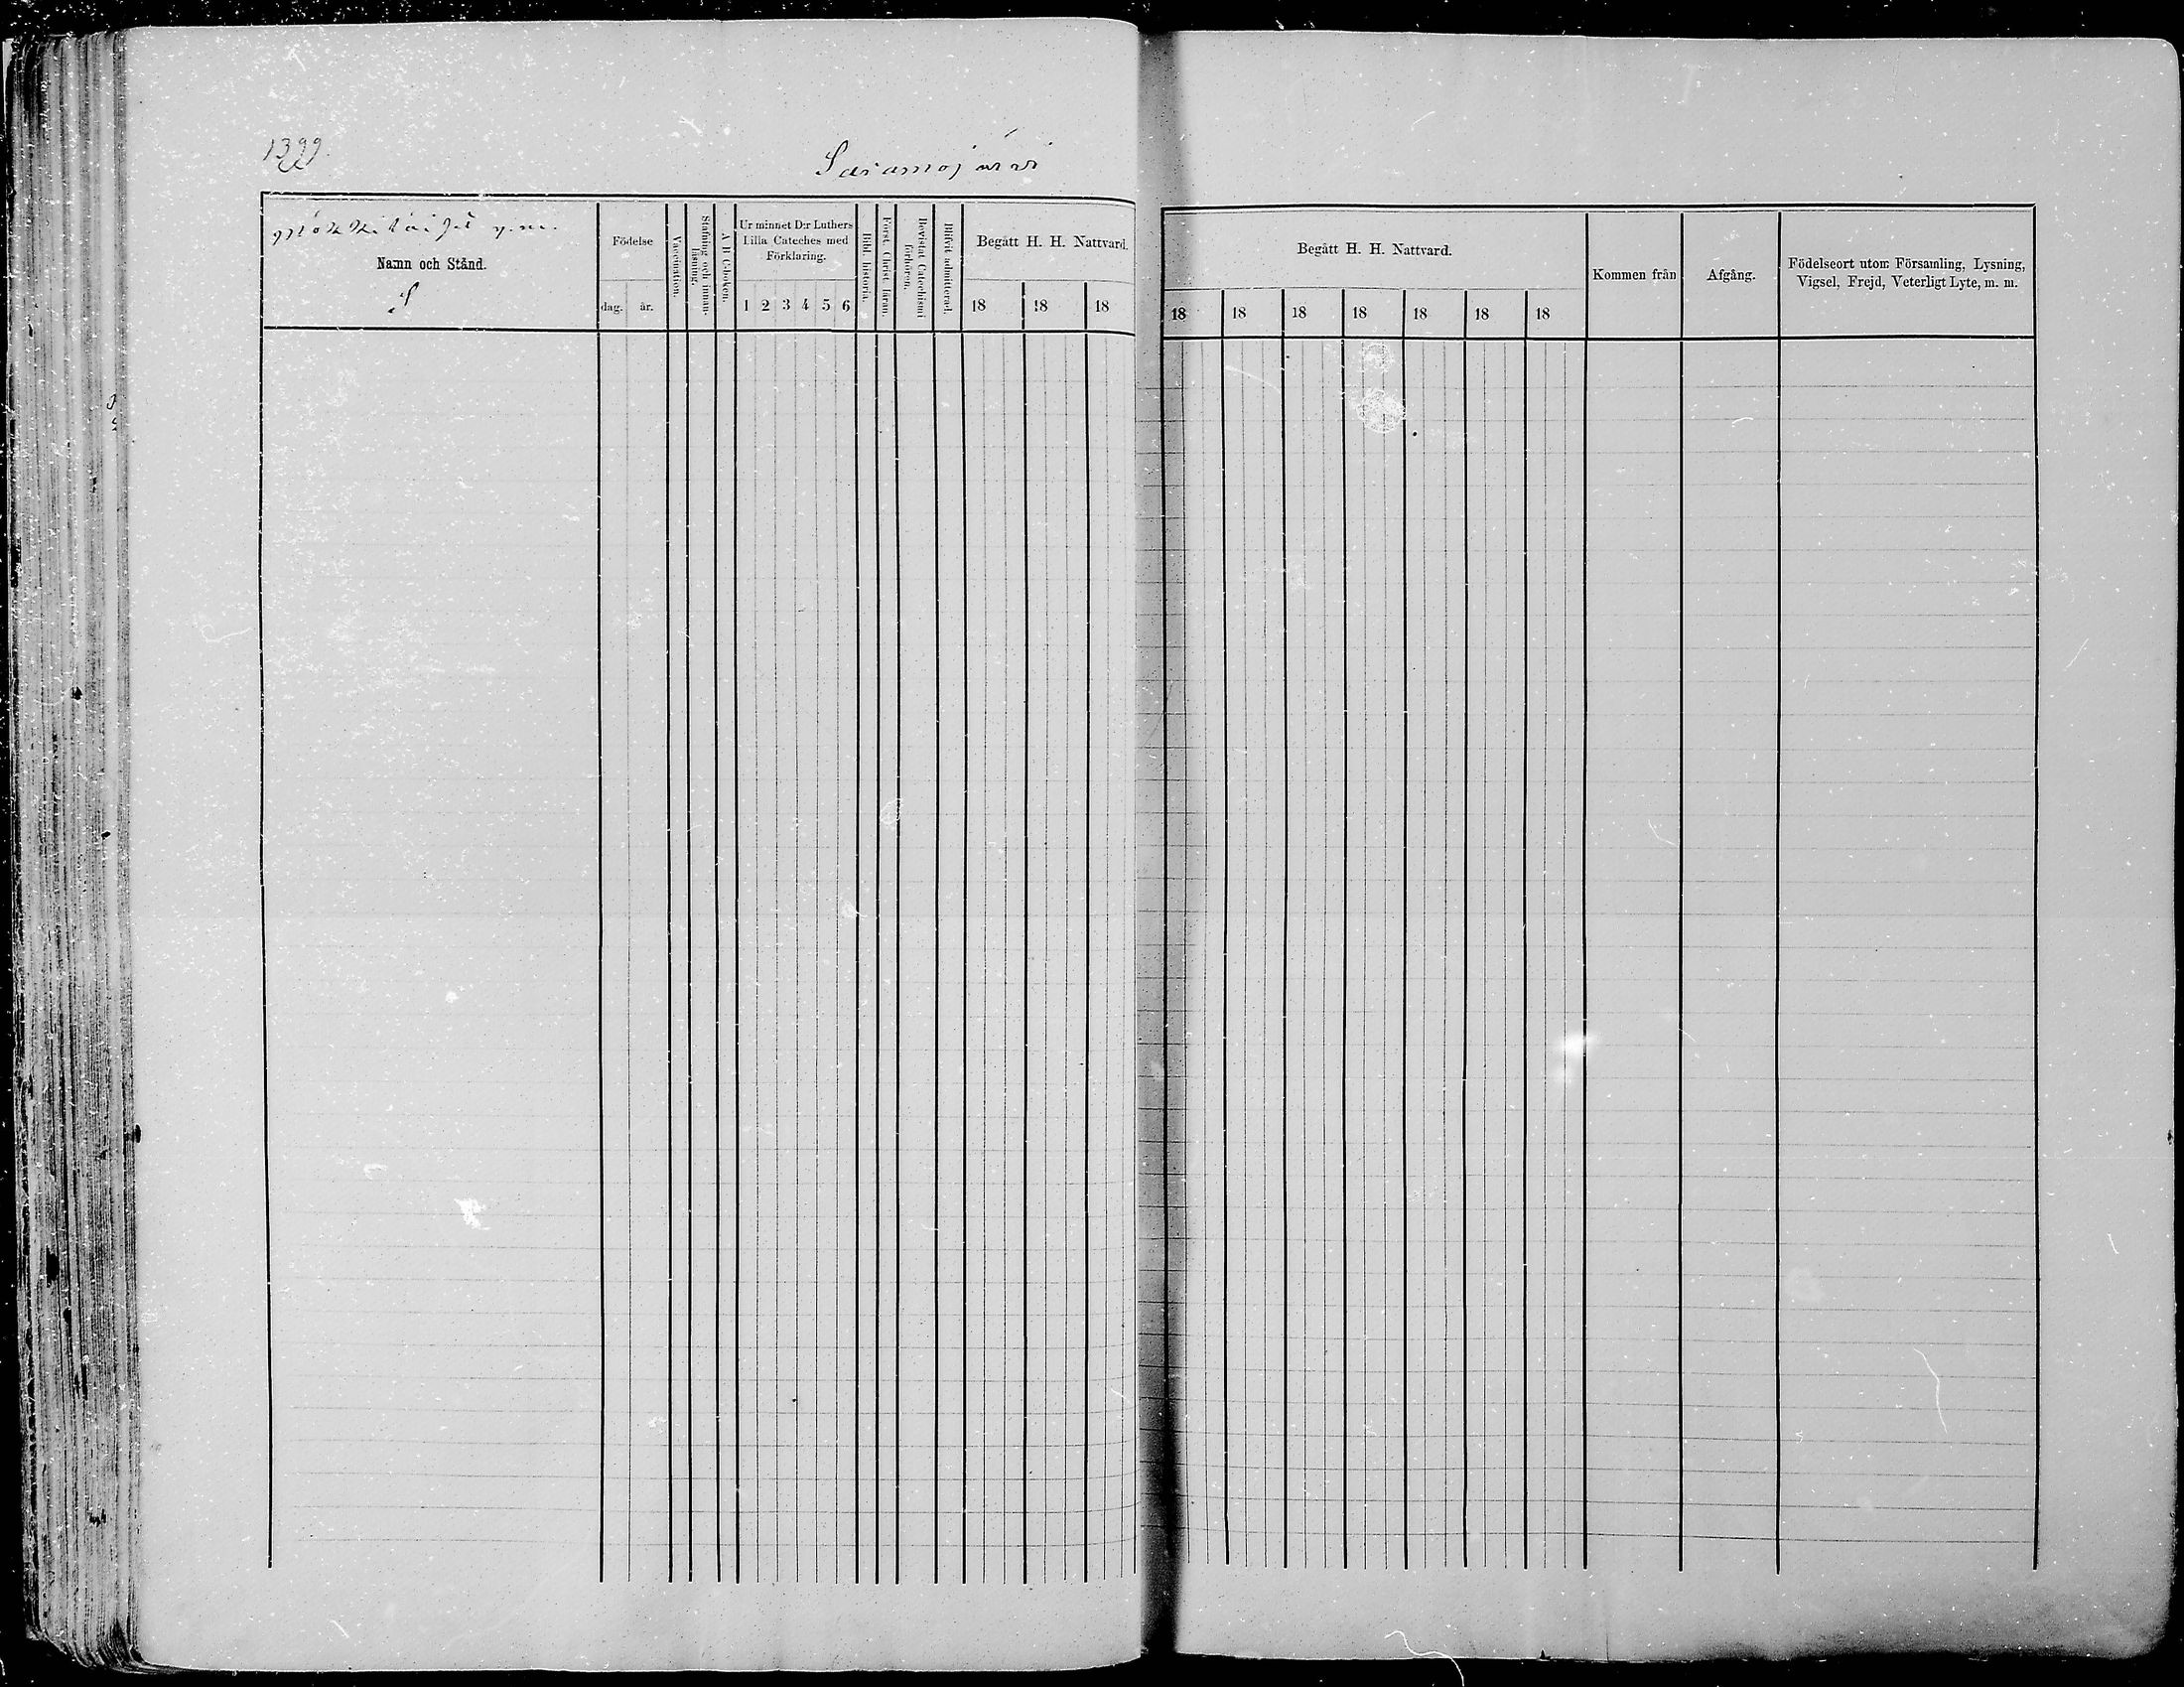 1399.
Saramojärvi
Namn och Stånd.
S
Födelse
dag. år.
Vaccination.
Stafning och innanläsning.
A B C-boken.
Ur minnet D:r Luthers
Lilla Cateches med
Förklaring.
1 2 3 4 5 6
Bibl. historia.
Först. Christ. läran.
Bevistat Catechismi
förhören.
Blifvit admitterad.
Begått H. H. Nattvard.
18 18 18
Begått H. H. Nattvard.
18 18 18 18 18 18 18
Kommen från
Afgång.
Födelseort utom Församling, Lysning,
Vigsel, Frejd, Veterligt Lyte, m. m.